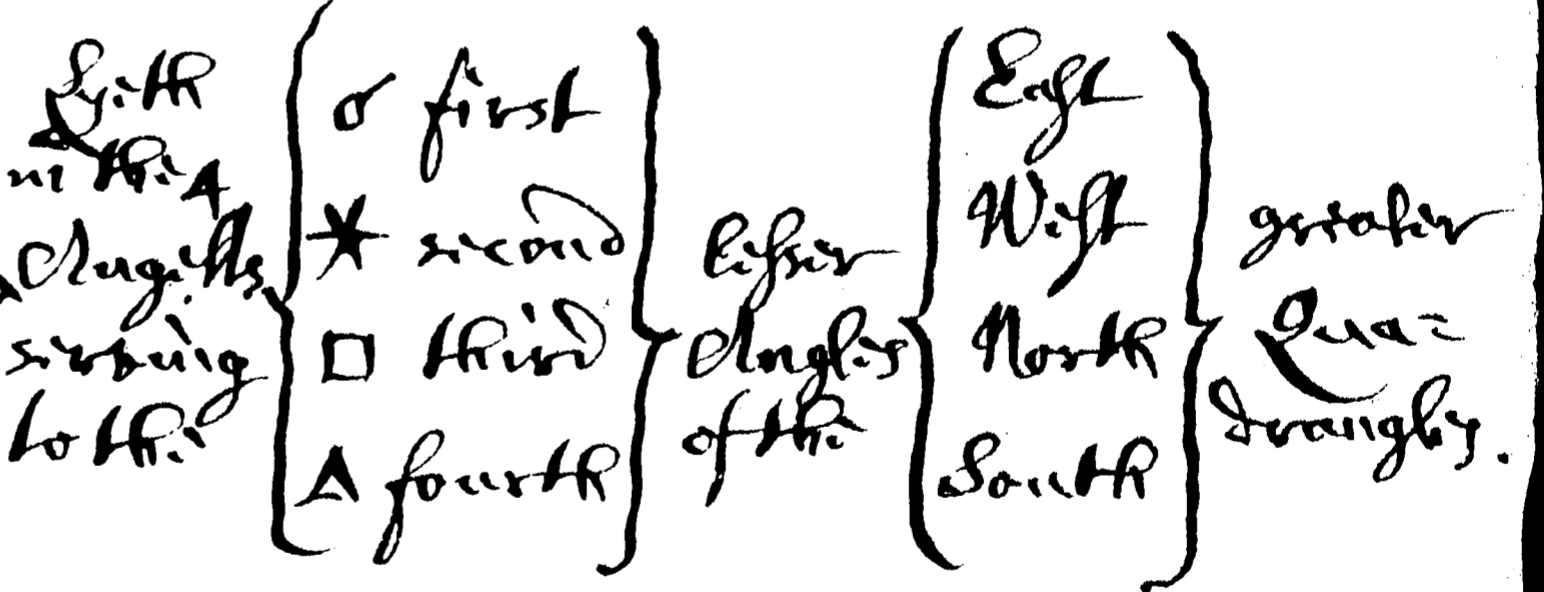 Lyeth
in the 4
Angells
serving
to the
☌ first
⚹ second
□ third
△ fourth
lesser
Angles
of the
East
West
North
South
greater
Qua=
drangles.